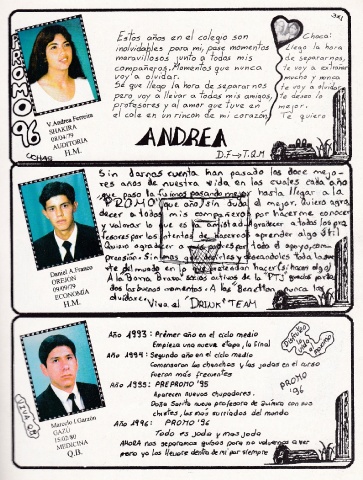 PROMO 96
V. Andrea Ferreira
SHAKIRA
08/04/79
AUDITORIA
H.M.
Estos años en el colegio son
inolvidables para mi, pase momentos
maravillosos junto a todas mis
compañeras. Momentos que nunca
voy a olvidar.
Sé que llega la hora de separarnos
pero voy a llevar a todas mis amigos,
profesores y al amor que tuve en
el cole en un rincón de mi corazón
ANDREA
D.F → T.Q.M
Chocai
llego la hora
de separarnos,
te voy a extrañar
mucho y nunca
te voy a olvidar
te deseo lo
mejor.
Te quiero
Daniel A. Franco
OREJON
09/09/79
ECONOMÍA
H.M.
Sin darnos cuenta han pasado los doce mejo-
res años de nuestra vida, en los cuales cada año
que paso la fuimos pasando mejor hasta llegar a la
"PROMO" que año! sin duda el mejor. Quiero agra-
decer a todos mis compañeros por hacerme conocer
y valorar lo que es la amistad. Agradecer a todos los profe-
sores por los intentos de hacernos aprender algo útil.
Quiero agradecer a mis padres por todo el apoyo, com-
prensión. Sin mas que decirles y deseandoles toda la suer-
te del mundo en lo que pretendan hacer (si hacen algo)
A la Barra Brava, socios activos de la "PJ" gracias por to-
dos los buenos momentos. A les Benetton nunca los
olvidare.
Viva el "DRINK" TEAM
Marcelo J. Garzón
GAZU
15-02-80
MEDICINA
Q.B.
VIVA QB
Año 1993: Primer año en el ciclo medio
Empieza una nueva etapa, la final
Año 1994: Segundo año en el ciclo medio
Comenzaron las chanchas y las jodas en el curso
Fueron más frecuentes
Año 1995: PREPROMO '95
Aparecen nuevos chupadores.
Doña Sarita nueva profesora de Química con sus
chistes, los más surriados del mundo
Año 1996: PROMO '96
Todo es joda y mas joda
AHORA nos separamos quizas para no volvernos a ver
pero yo los llevare dentro de mi por siempre
PROMO
'96